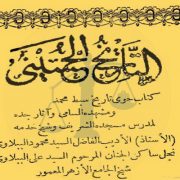 التاريخ الحسيني
كتاب حوى تاريخ سيد محمد
ومشهده السامى وآثار جده
لمدرس مسجده الشريف وشيخ خدمه
(الأستاذ) الأديب الفاضل السيد محمود الببلاوى
نجل ساكن الجنان المرحوم السيد على الببلاوى
شيخ الجامع الأزهر المعمور